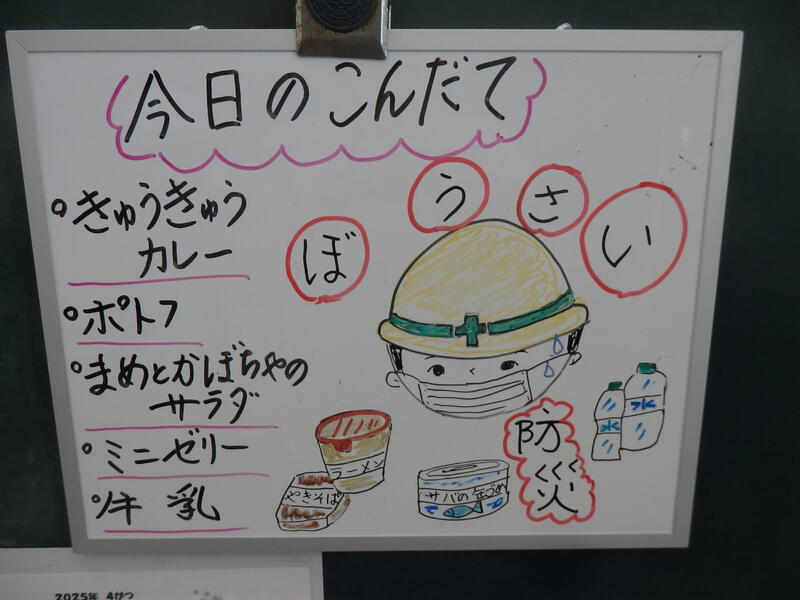 今日のこんだて
・きゅうきゅう
カレー
・ポトフ
・まめとかぼちゃの
サラダ
・ミニゼリー
・牛乳
ぼうさい
ラーメン
やきそば
サバの缶づめ
防災
水
水
2025年 4がつ